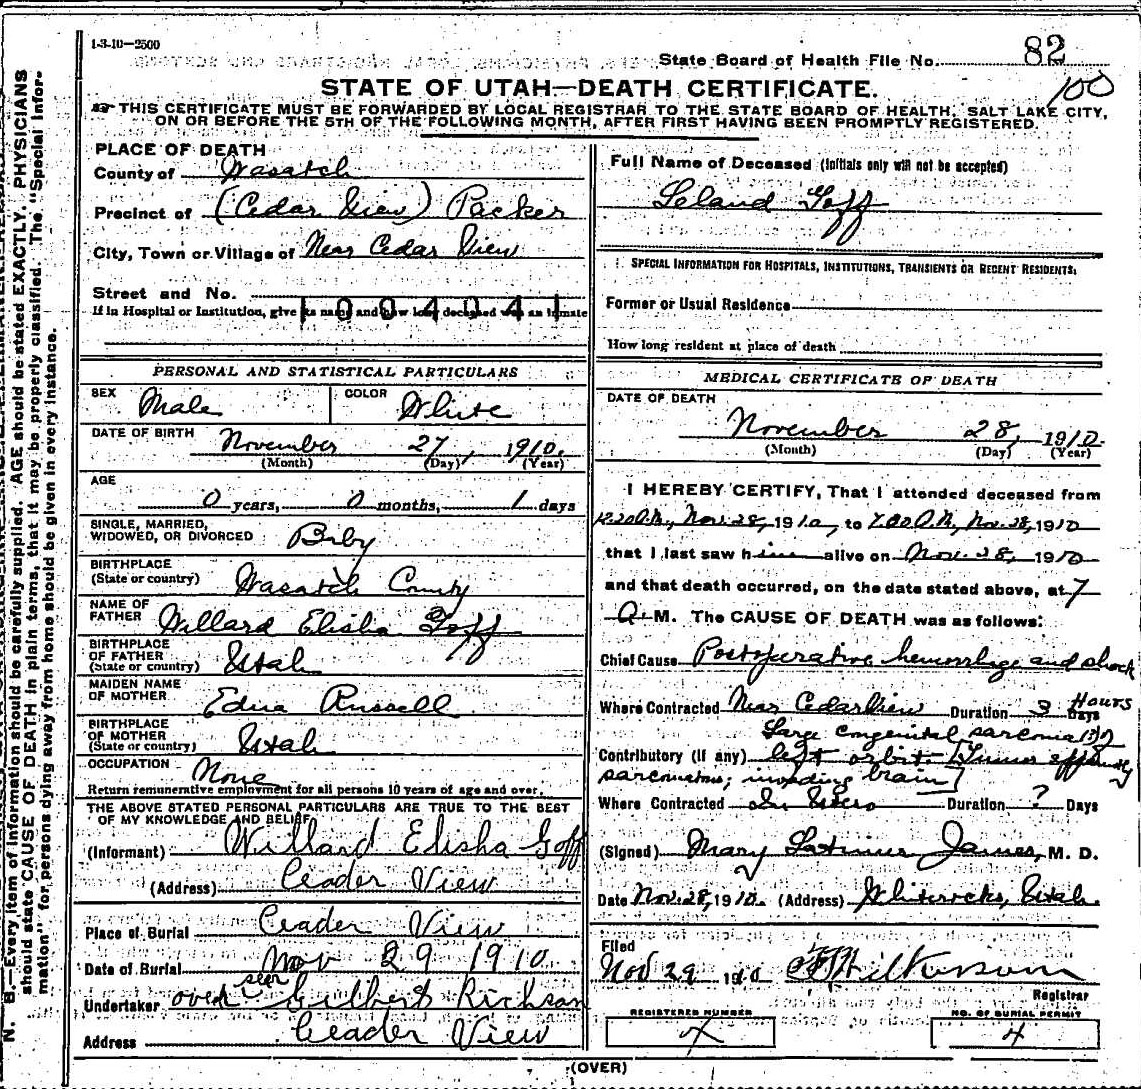 1-3-10—2500
State Board of Health File No. 82
100
STATE OF UTAH—DEATH CERTIFICATE.
THIS CERTIFICATE MUST BE FORWARDED BY LOCAL REGISTRAR TO THE STATE BOARD OF HEALTH, SALT LAKE CITY,
ON OR BEFORE THE 5TH OF THE FOLLOWING MONTH, AFTER FIRST HAVING BEEN PROMPTLY REGISTERED.
PLACE OF DEATH
County of Wasatch
Precinct of (Cedar View) Packer
City, Town or Village of Near Cedar View
Street and No.
1004041
If in Hospital or Institution, give its name and how long deceased was an inmate
Full Name of Deceased (Initials only will not be accepted)
Leland Goff
SPECIAL INFORMATION FOR HOSPITALS, INSTITUTIONS, TRANSIENTS OR RECENT RESIDENTS:
Former or Usual Residence
How long resident at place of death
PERSONAL AND STATISTICAL PARTICULARS
SEX Male COLOR White
DATE OF BIRTH November 27, 1910.
(Month) (Day) (Year)
AGE
0 years, 0 months, 1 days
SINGLE, MARRIED,
WIDOWED, OR DIVORCED Baby
BIRTHPLACE
(State or country) Wasatch County
NAME OF
FATHER Willard Elisha Goff
BIRTHPLACE
OF FATHER
(State or country) Utah
MAIDEN NAME
OF MOTHER Edna Russell
BIRTHPLACE
OF MOTHER
(State or country) Utah
OCCUPATION None
Return remunerative employment for all persons 10 years of age and over.
THE ABOVE STATED PERSONAL PARTICULARS ARE TRUE TO THE BEST
OF MY KNOWLEDGE AND BELIEF
(Informant) Willard Elisha Goff
(Address) Ceader View
Place of Burial Ceader View
Date of Burial Nov 29 1910
Undertaker over seer Gilbert Richson
Address Ceader View
MEDICAL CERTIFICATE OF DEATH
DATE OF DEATH
November 28, 1910.
(Month) (Day) (Year)
I HEREBY CERTIFY, That I attended deceased from
12.20 A.M., Nov. 28, 1910, to 7.00 A.M., Nov. 28, 1910
that I last saw him alive on Nov. 28, 1910
and that death occurred, on the date stated above, at 7
A. M. The CAUSE OF DEATH was as follows:
Chief Cause Postoperative hemorrhage and shock
Where Contracted Near Cedar View Duration 3 Days Hours
Large congenital sarcoma of
Contributory (if any) left orbit. [Tumor
sarcomatous; invading brain]
Where Contracted In Utero Duration ? Days
(Signed) Mary Latimer James, M. D.
Date Nov. 28, 1910. (Address) Whiterocks, Utah.
Filed
Nov 29 1910 Wilkerson
Registrar
REGISTERED NUMBER
NO. OF BURIAL PERMIT
4
(OVER)
N. B.—Every item of information should be carefully supplied. AGE should be stated EXACTLY. PHYSICIANS
should state CAUSE OF DEATH in plain terms, that it may be properly classified. The "Special Infor-
mation" for persons dying away from home should be given in every instance.